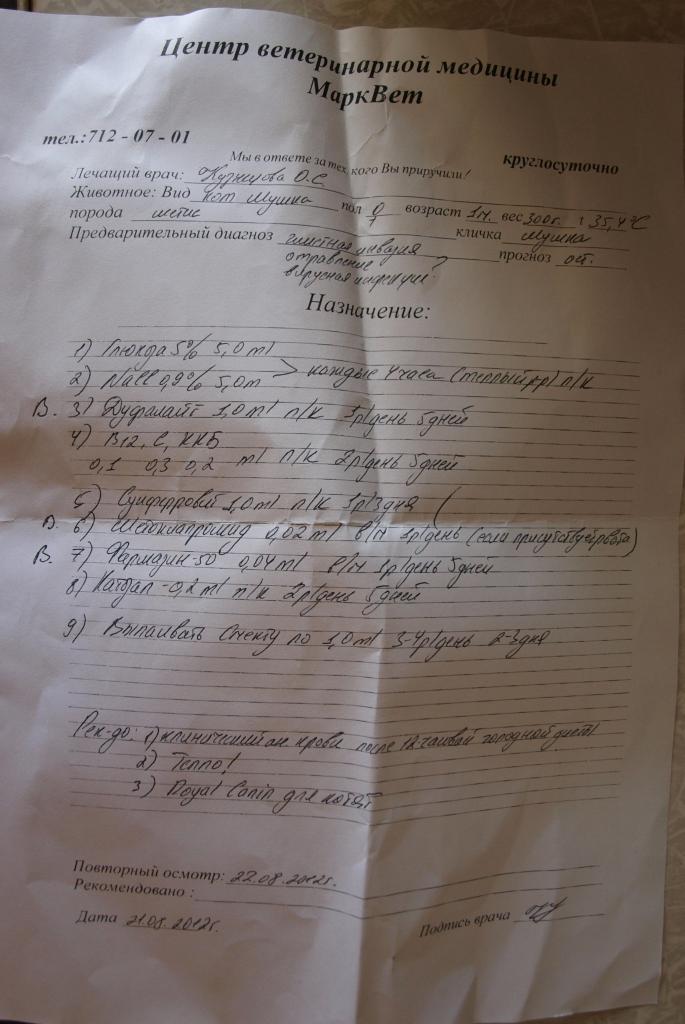 Центр ветеринарной медицины
МаркВет
тел.:712 - 07 - 01
круглосуточно
Мы в ответе за тех, кого Вы приручили!
Лечащий врач: Кузнецова О.С
Животное: Вид кот Мушка пол возраст 1м. вес 300г. t 35,4°C
порода метис кличка Мушка
Предварительный диагноз глистная инвазия прогноз ост.
отравление ?
вирусная инфекция
Назначение:
1) Глюкоза 5% 5,0 ml
2) NaCl 0,9% 5,0m > каждые 4 часа (теплый р-р) п/к
В. 3) Дуфалайт 1,0 ml п/к 1р/день 5 дней
4) B12, C, ККБ
0,1 0,3 0,2 ml п/к 2р/день 5 дней
5) 1,0 ml п/к 1р/3 дня (
6) 0,02 ml в/м 1р/день (если присутствует рвота)
В. 7) Фармазин-50 0,04 ml в/м 1р/день 5 дней
8) Катозал - 0,2 ml п/к 2р/день 5 дней
9) Выпаивать Смекту по 1,0 ml 3-4р/день 2-3 дня
Рек-до: 1) клинический ан крови после 12-часовой голодной диеты
2) Тепло!
3) Royal Canin для котят
Повторный осмотр: 22.08.2012г.
Рекомендовано :
Дата 21.08.2012г.
Подпись врача